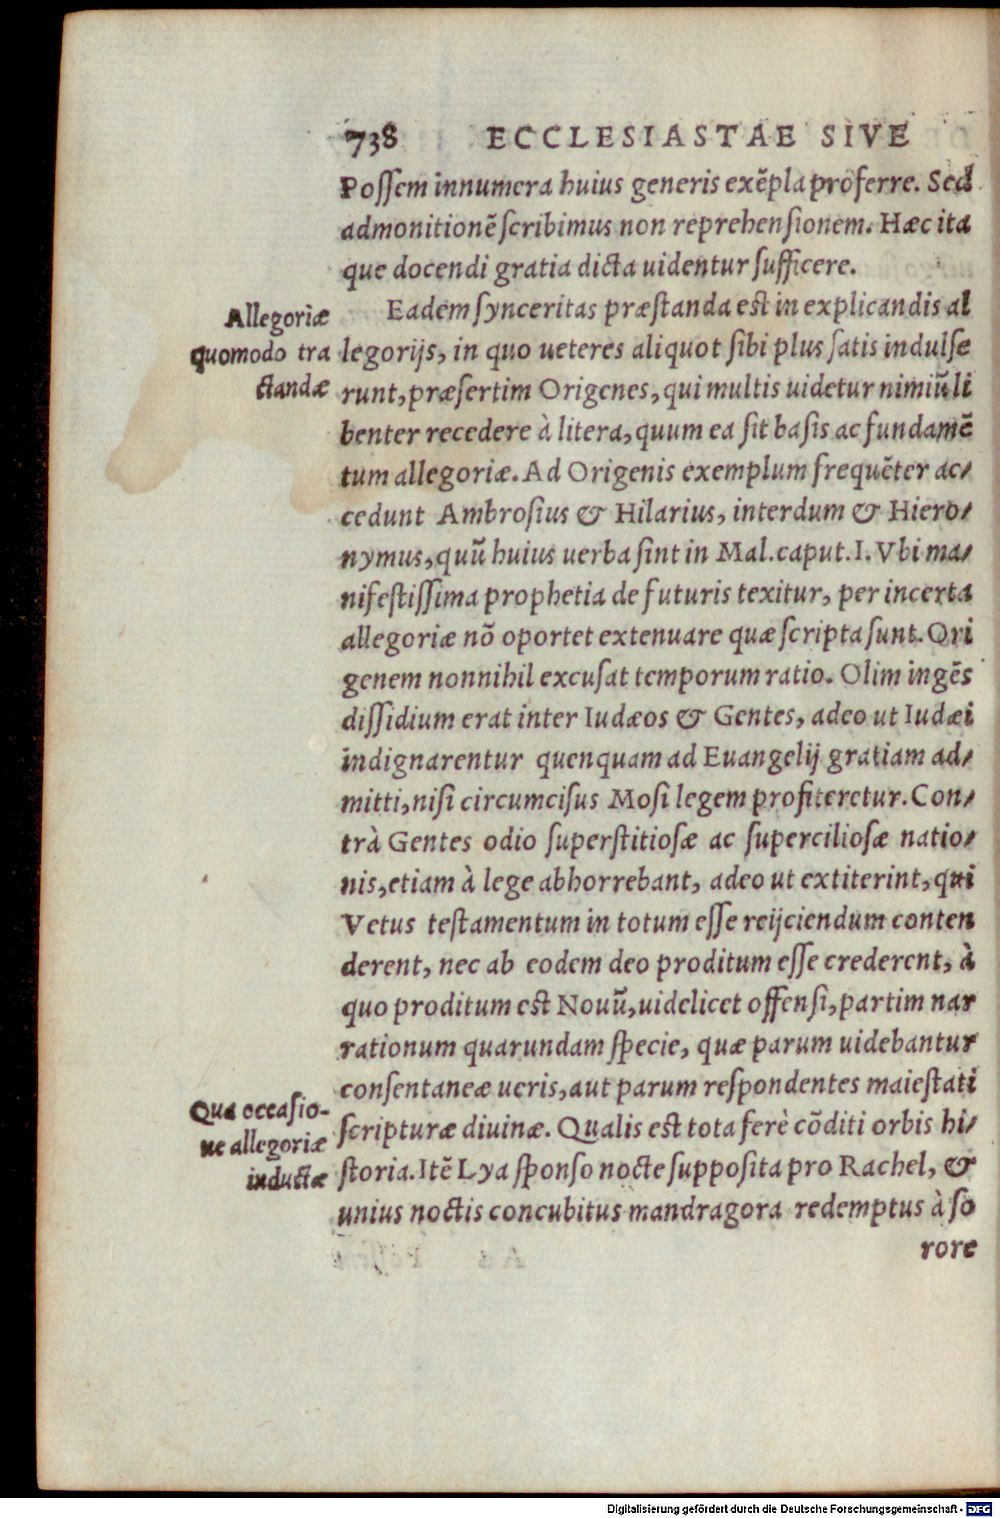 738 ECCLESIASTAE SIVE
Possem innumera huius generis exẽpla proferre. Sed
admonitionẽ scribimus non reprehensionem. Hæc ita
que docendi gratia dicta uidentur sufficere.
Eadem synceritas præstanda est in explicandis al
Allegoriæ
quomodo tra
ctandæ
legorijs, in quo ueteres aliquot sibi plus satis indulse
runt, præsertim Origenes, qui multis uidetur nimiũ li
benter recedere à litera, quum ea sit basis ac fundamẽ
tum allegoriæ. Ad Origenis exemplum frequẽter ac/
cedunt Ambrosius & Hilarius, interdum & Hiero/
nymus, quũ huius uerba sint in Mal. caput. I. Vbi ma/
nifestissima prophetia de futuris texitur, per incerta
allegoriæ nõ oportet extenuare quæ scripta sunt. Ori
genem nonnihil excusat temporum ratio. Olim ingẽs
dissidium erat inter Iudæos & Gentes, adeo ut Iudæi
indignarentur quenquam ad Euangelij gratiam ad/
mitti, nisi circumcisus Mosi legem profiteretur. Con/
trà Gentes odio superstitiosæ ac superciliosæ natio/
nis, etiam à lege abhorrebant, adeo ut extiterint, qui
Vetus testamentum in totum esse reijciendum conten
derent, nec ab eodem deo proditum esse crederent, à
quo proditum est Nouũ, uidelicet offensi, partim nar
rationum quarundam specie, quæ parum uidebantur
consentaneæ ueris, aut parum respondentes maiestati
Qua occasio-
ne allegoriæ
inductæ
scripturæ diuinæ. Qualis est tota ferè cõditi orbis hi/
storia. Itẽ Lya sponso nocte supposita pro Rachel, &
unius noctis concubitus mandragora redemptus à so
rore
Digitalisierung gefördert durch die Deutsche Forschungsgemeinschaft - DFG